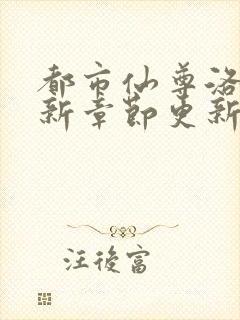 都市仙尊洛
新章节更新
汪後富